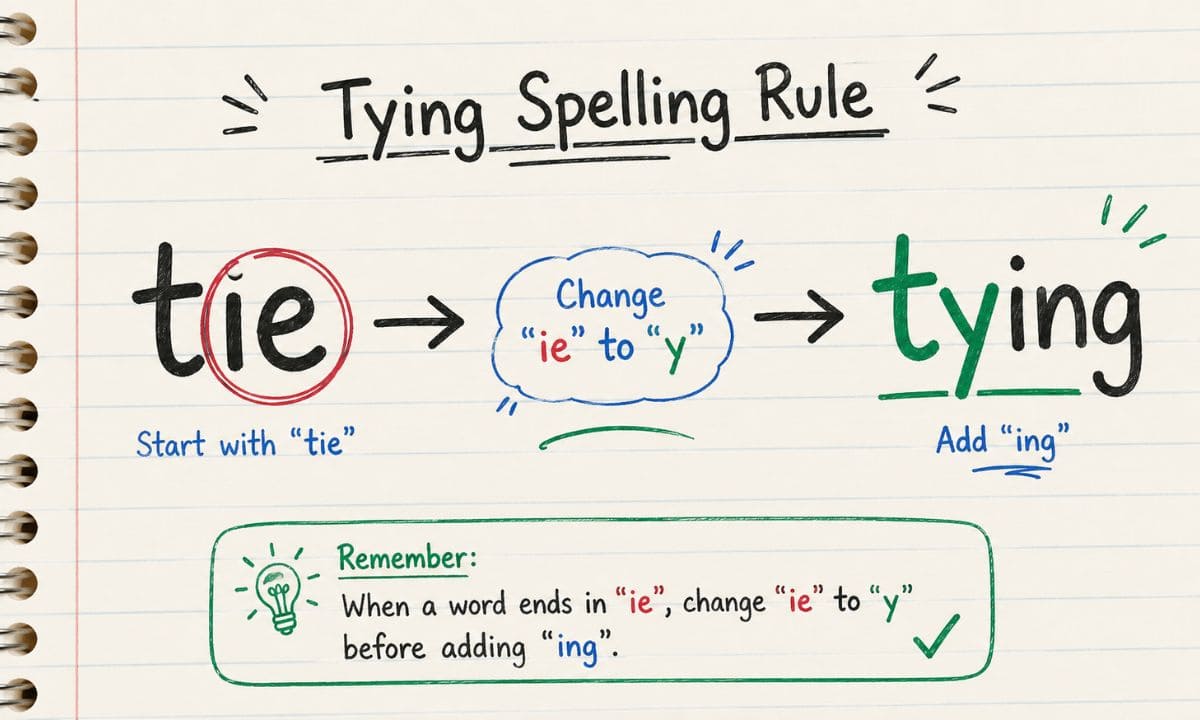 Tying Spelling Rule
tie → Change → tying
“ie” to “y”
Start with “tie”
Add “ing”
Remember:
When a word ends in “ie”, change “ie” to “y”
before adding “ing”.